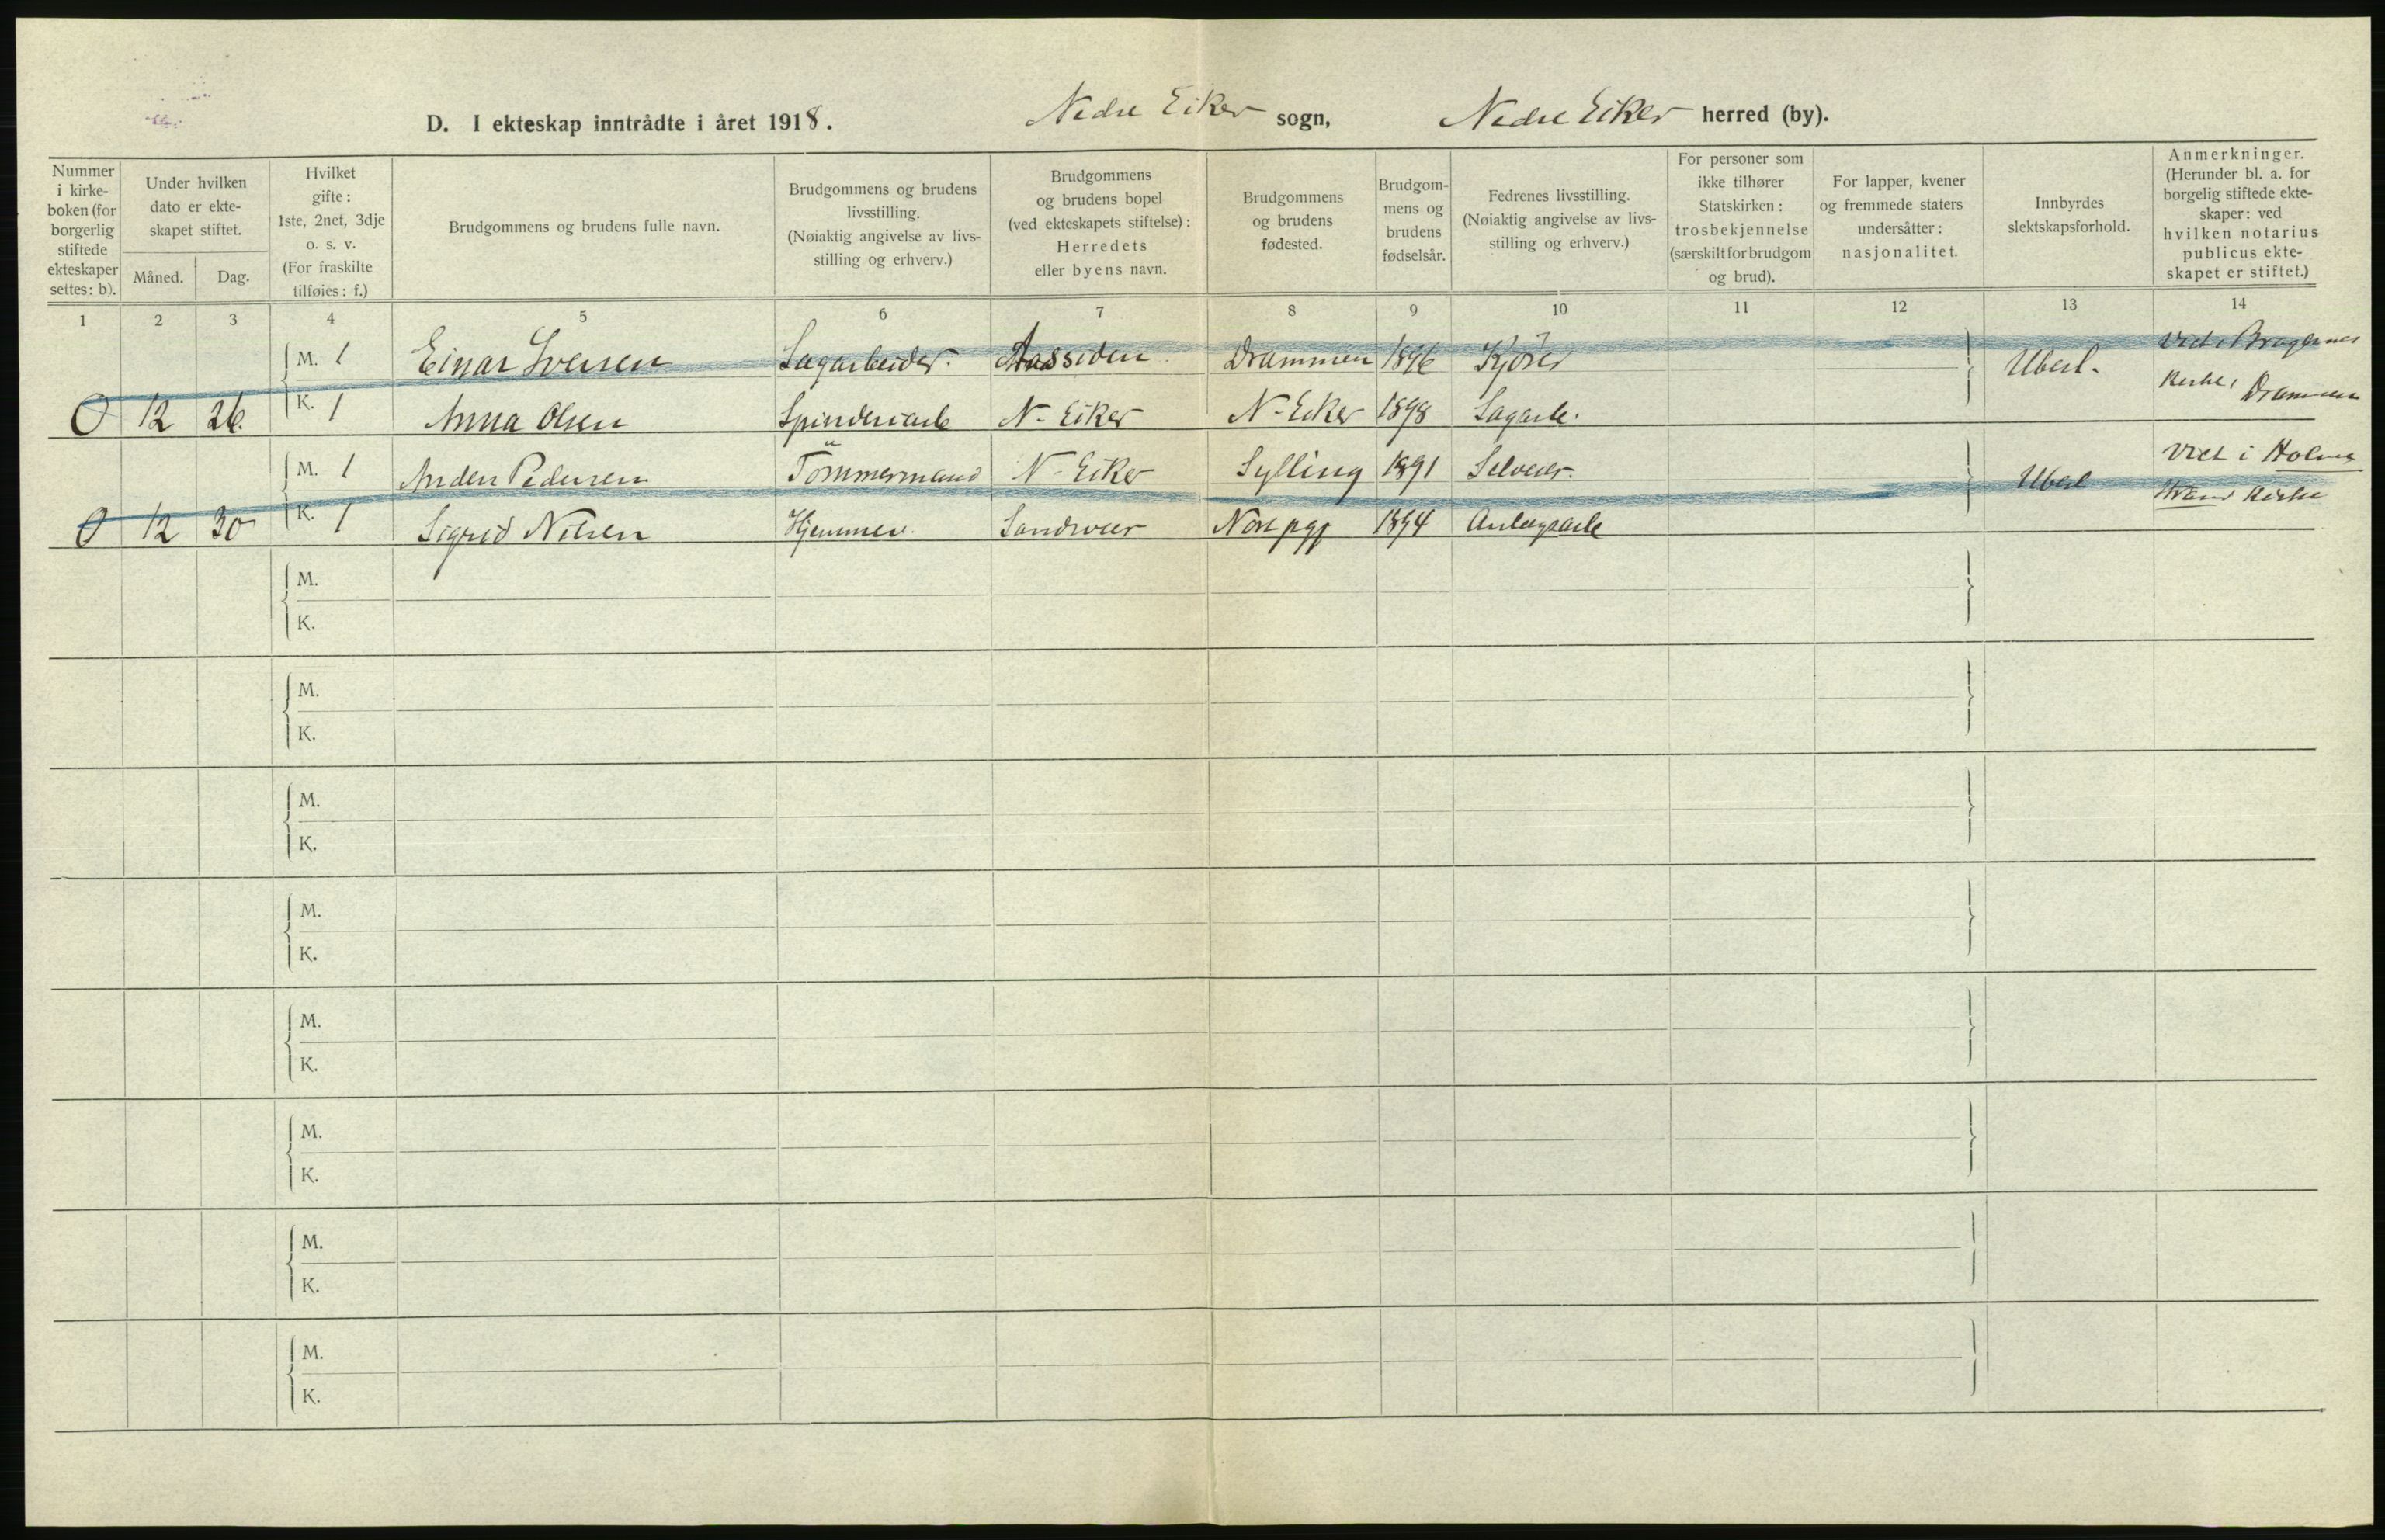 D. I ekteskap inntrådte i året 1918. Nedre Eiker sogn, Nedre Eiker herred (by).
Nummer
i kirke-
boken (for
borgerlig
stiftede
ekteskaper
settes: b).
Under hvilken
dato er ekte-
skapet stiftet.
Måned.
Dag.
Hvilket
gifte:
1ste, 2net, 3dje
o. s. v.
(For fraskilte
tilføies: f.)
Brudgommens og brudens fulle navn.
Brudgommens og brudens
livsstilling.
(Nøiaktig angivelse av livs-
stilling og erhverv.)
Brudgommens
og brudens bopel
(ved ekteskapets stiftelse):
Herredets
eller byens navn.
Brudgommens
og brudens
fødested.
Brudgom-
mens og
brudens
fødselsår.
Fedrenes livsstilling.
(Nøiaktig angivelse av livs-
stilling og erhverv.)
For personer som
ikke tilhører
Statskirken:
trosbekjennelse
(særskilt for brudgom
og brud).
For lapper, kvener
og fremmede staters
undersåtter:
nasjonalitet.
Innbyrdes
slektskapsforhold.
Anmerkninger.
(Herunder bl. a. for
borgelig stiftede ekte-
skaper: ved
hvilken notarius
publicus ekte-
skapet er stiftet.)
1 2 3 4 5 6 7 8 9 10 11 12 13 14
M. 1 Einar Iversen Sagarbeider. Aassiden Drammen 1896 Kjører Ubesl. Viet i Bragernes
0 12 26. K. 1 Anna Olsen Spinderiarb N-Eiker N-Eiker 1898 Sagarb. Kirke, Drammen
M. 1 Anders Pedersen Tömmermand N-Eiker Sylling 1891 Selveier. Ubesl Viet i Holms
0 12 30 K. 1 Sigrid Nilsen Hjemmev. Sandsvær 1894 Anlægsarb strand Kirke
M.
K.
M.
K.
M.
K.
M.
K.
M.
K.
M.
K.
M.
K.
M.
K.